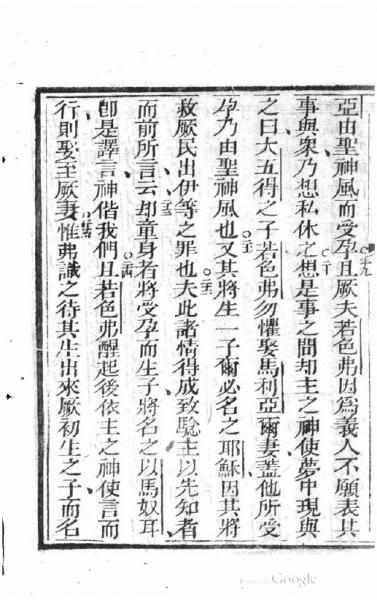 亞由聖神風而受孕且厥夫若色弗因爲義人不願表其
十九
事與衆乃想私休之想是事之間却主之神使夢中現與
二十
之曰大五得之子若色弗勿懼娶馬利亞爾妻蓋他所受
孕乃由聖神風也又其將生一子爾必名之耶穌因其將
二一
救厥民出伊等之罪也夫此諸情得成致騐主以先知者
二二
而前所言云却童身者將受孕而生子將名之以馬奴耳
二三
卽是譯言神偕我們且若色弗醒起後依主之神使言而
二四
行則娶至厥妻惟弗識之待其生出來厥初生之子而名
二五
Google